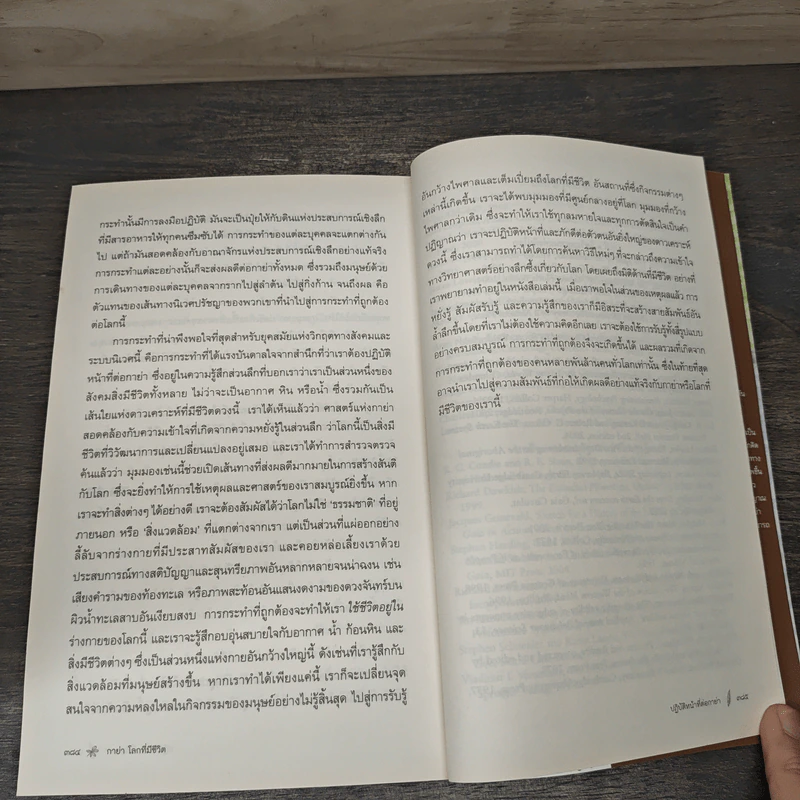 กระทำนั้นมีการลงมือปฏิบัติ มันจะเป็นปุ๋ยให้กับดินแห่งประสบการณ์เชิงลึก
ที่มีสารอาหารให้ทุกคนซึมซับได้ การกระทำของแต่ละบุคคลจะแตกต่างกัน
ไป แต่ถ้ามันสอดคล้องกับอาณาจักรแห่งประสบการณ์เชิงลึกอย่างแท้จริง
การกระทำแต่ละอย่างนั้นก็จะส่งผลดีต่อกาย่าทั้งหมด ซึ่งรวมถึงมนุษย์ด้วย
การเดินทางของแต่ละบุคคลจากรากไปสู่ลำต้น ไปสู่กิ่งก้าน จนถึงผล คือ
ตัวแทนของเส้นทางนิเวศปรัชญาของพวกเขาที่นำไปสู่การกระทำที่ถูกต้อง
ต่อโลกนี้
การกระทำที่น่าพึงพอใจที่สุดสำหรับยุคสมัยแห่งวิกฤตทางสังคมและ
ระบบนิเวศนี้ คือการกระทำที่ได้แรงบันดาลใจจากสำนึกที่ว่าเราต้องปฏิบัติ
หน้าที่ต่อกาย่า ซึ่งอยู่ในความรู้สึกส่วนลึกที่บอกเราว่าเราเป็นส่วนหนึ่งของ
สังคมสิ่งมีชีวิตทั้งหลาย ไม่ว่าจะเป็นอากาศ หิน หรือน้ำ ซึ่งรวมกันเป็น
เส้นใยแห่งดาวเคราะห์ที่มีชีวิตดวงนี้ เราได้เห็นแล้วว่า ศาสตร์แห่งกาย่า
สอดคล้องกับความเข้าใจที่เกิดจากความหยั่งรู้ในส่วนลึก ว่าโลกนี้เป็นสิ่งมี
ชีวิตที่วิวัฒนาการและเปลี่ยนแปลงอยู่เสมอ และเราได้ทำการสำรวจตรวจ
ค้นแล้วว่า มุมมองเช่นนี้ช่วยเปิดเส้นทางที่ส่งผลดีมากมายในการสร้างสันติ
กับโลก ซึ่งจะยิ่งทำให้การใช้เหตุผลและศาสตร์ของเราสมบูรณ์ยิ่งขึ้น หาก
เราจะทำสิ่งต่างๆ ได้อย่างดี เราจะต้องสัมผัสได้ว่าโลกไม่ใช่ 'ธรรมชาติ' ที่อยู่
ภายนอก หรือ 'สิ่งแวดล้อม' ที่แตกต่างจากเรา แต่เป็นส่วนที่แผ่ออกอย่าง
ลี้ลับจากร่างกายที่มีประสาทสัมผัสของเรา และคอยหล่อเลี้ยงเราด้วย
ประสบการณ์ทางสติปัญญาและสุนทรียภาพอันหลากหลายจนน่าฉงน เช่น
เสียงคำรามของท้องทะเล หรือภาพสะท้อนอันแสนงดงามของดวงจันทร์บน
ผิวน้ำทะเลสาบอันเงียบสงบ การกระทำที่ถูกต้องจะทำให้เรา ใช้ชีวิตอยู่ใน
ร่างกายของโลกนี้ และเราจะรู้สึกอบอุ่นสบายใจกับอากาศ น้ำ ก้อนหิน และ
สิ่งมีชีวิตต่างๆ ซึ่งเป็นส่วนหนึ่งแห่งกายอันกว้างใหญ่นี้ ดังเช่นที่เรารู้สึกกับ
สิ่งแวดล้อมที่มนุษย์สร้างขึ้น หากเราทำได้เพียงแค่นี้ เราก็จะเปลี่ยนจุด
สนใจจากความหลงใหลในกิจกรรมของมนุษย์อย่างไม่รู้สิ้นสุด ไปสู่การรับรู้
๓๘๔ กาย่า โลกที่มีชีวิต
อันกว้างไพศาลและเต็มเปี่ยมถึงโลกที่มีชีวิต อันสถานที่ซึ่งกิจกรรมต่างๆ
เหล่านี้เกิดขึ้น เราจะได้พบมุมมองที่มีศูนย์กลางอยู่ที่โลก มุมมองที่กว้าง
ไพศาลกว่าเดิม ซึ่งจะทำให้เราใช้ทุกลมหายใจและทุกการตัดสินใจเป็นคำ
ปฏิญาณว่า เราจะปฏิบัติหน้าที่และภักดีต่อตัวตนอันยิ่งใหญ่ของดาวเคราะห์
ดวงนี้ ซึ่งเราสามารถทำได้โดยการค้นหาวิธีใหม่ๆ ที่จะกล่าวถึงความเข้าใจ
ทางวิทยาศาสตร์อย่างลึกซึ้งเกี่ยวกับโลก โดยเผยถึงมิติด้านที่มีชีวิต อย่างที่
เราพยายามทำอยู่ในหนังสือเล่มนี้ เมื่อเราพอใจในส่วนของเหตุผลแล้ว การ
หยั่งรู้ สัมผัสรับรู้ และความรู้สึกของเราก็มีอิสระที่จะสร้างสายสัมพันธ์อัน
ล้ำลึกขึ้นโดยที่เราไม่ต้องใช้ความคิดอีกเลย เราจะต้องใช้การรับรู้ทั้งสี่รูปแบบ
อย่างครบสมบูรณ์ การกระทำที่ถูกต้องจึงจะเกิดขึ้นได้ และผลรวมที่เกิดจาก
การกระทำที่ถูกต้องของคนหลายพันล้านคนทั่วโลกเท่านั้น ซึ่งในท้ายที่สุด
อาจนำเราไปสู่ความสัมพันธ์ที่ก่อให้เกิดผลดีอย่างแท้จริงกับกาย่าหรือโลกที่
มีชีวิตของเรานี้
ปฏิบัติหน้าที่ต่อกาย่า ๓๘๕